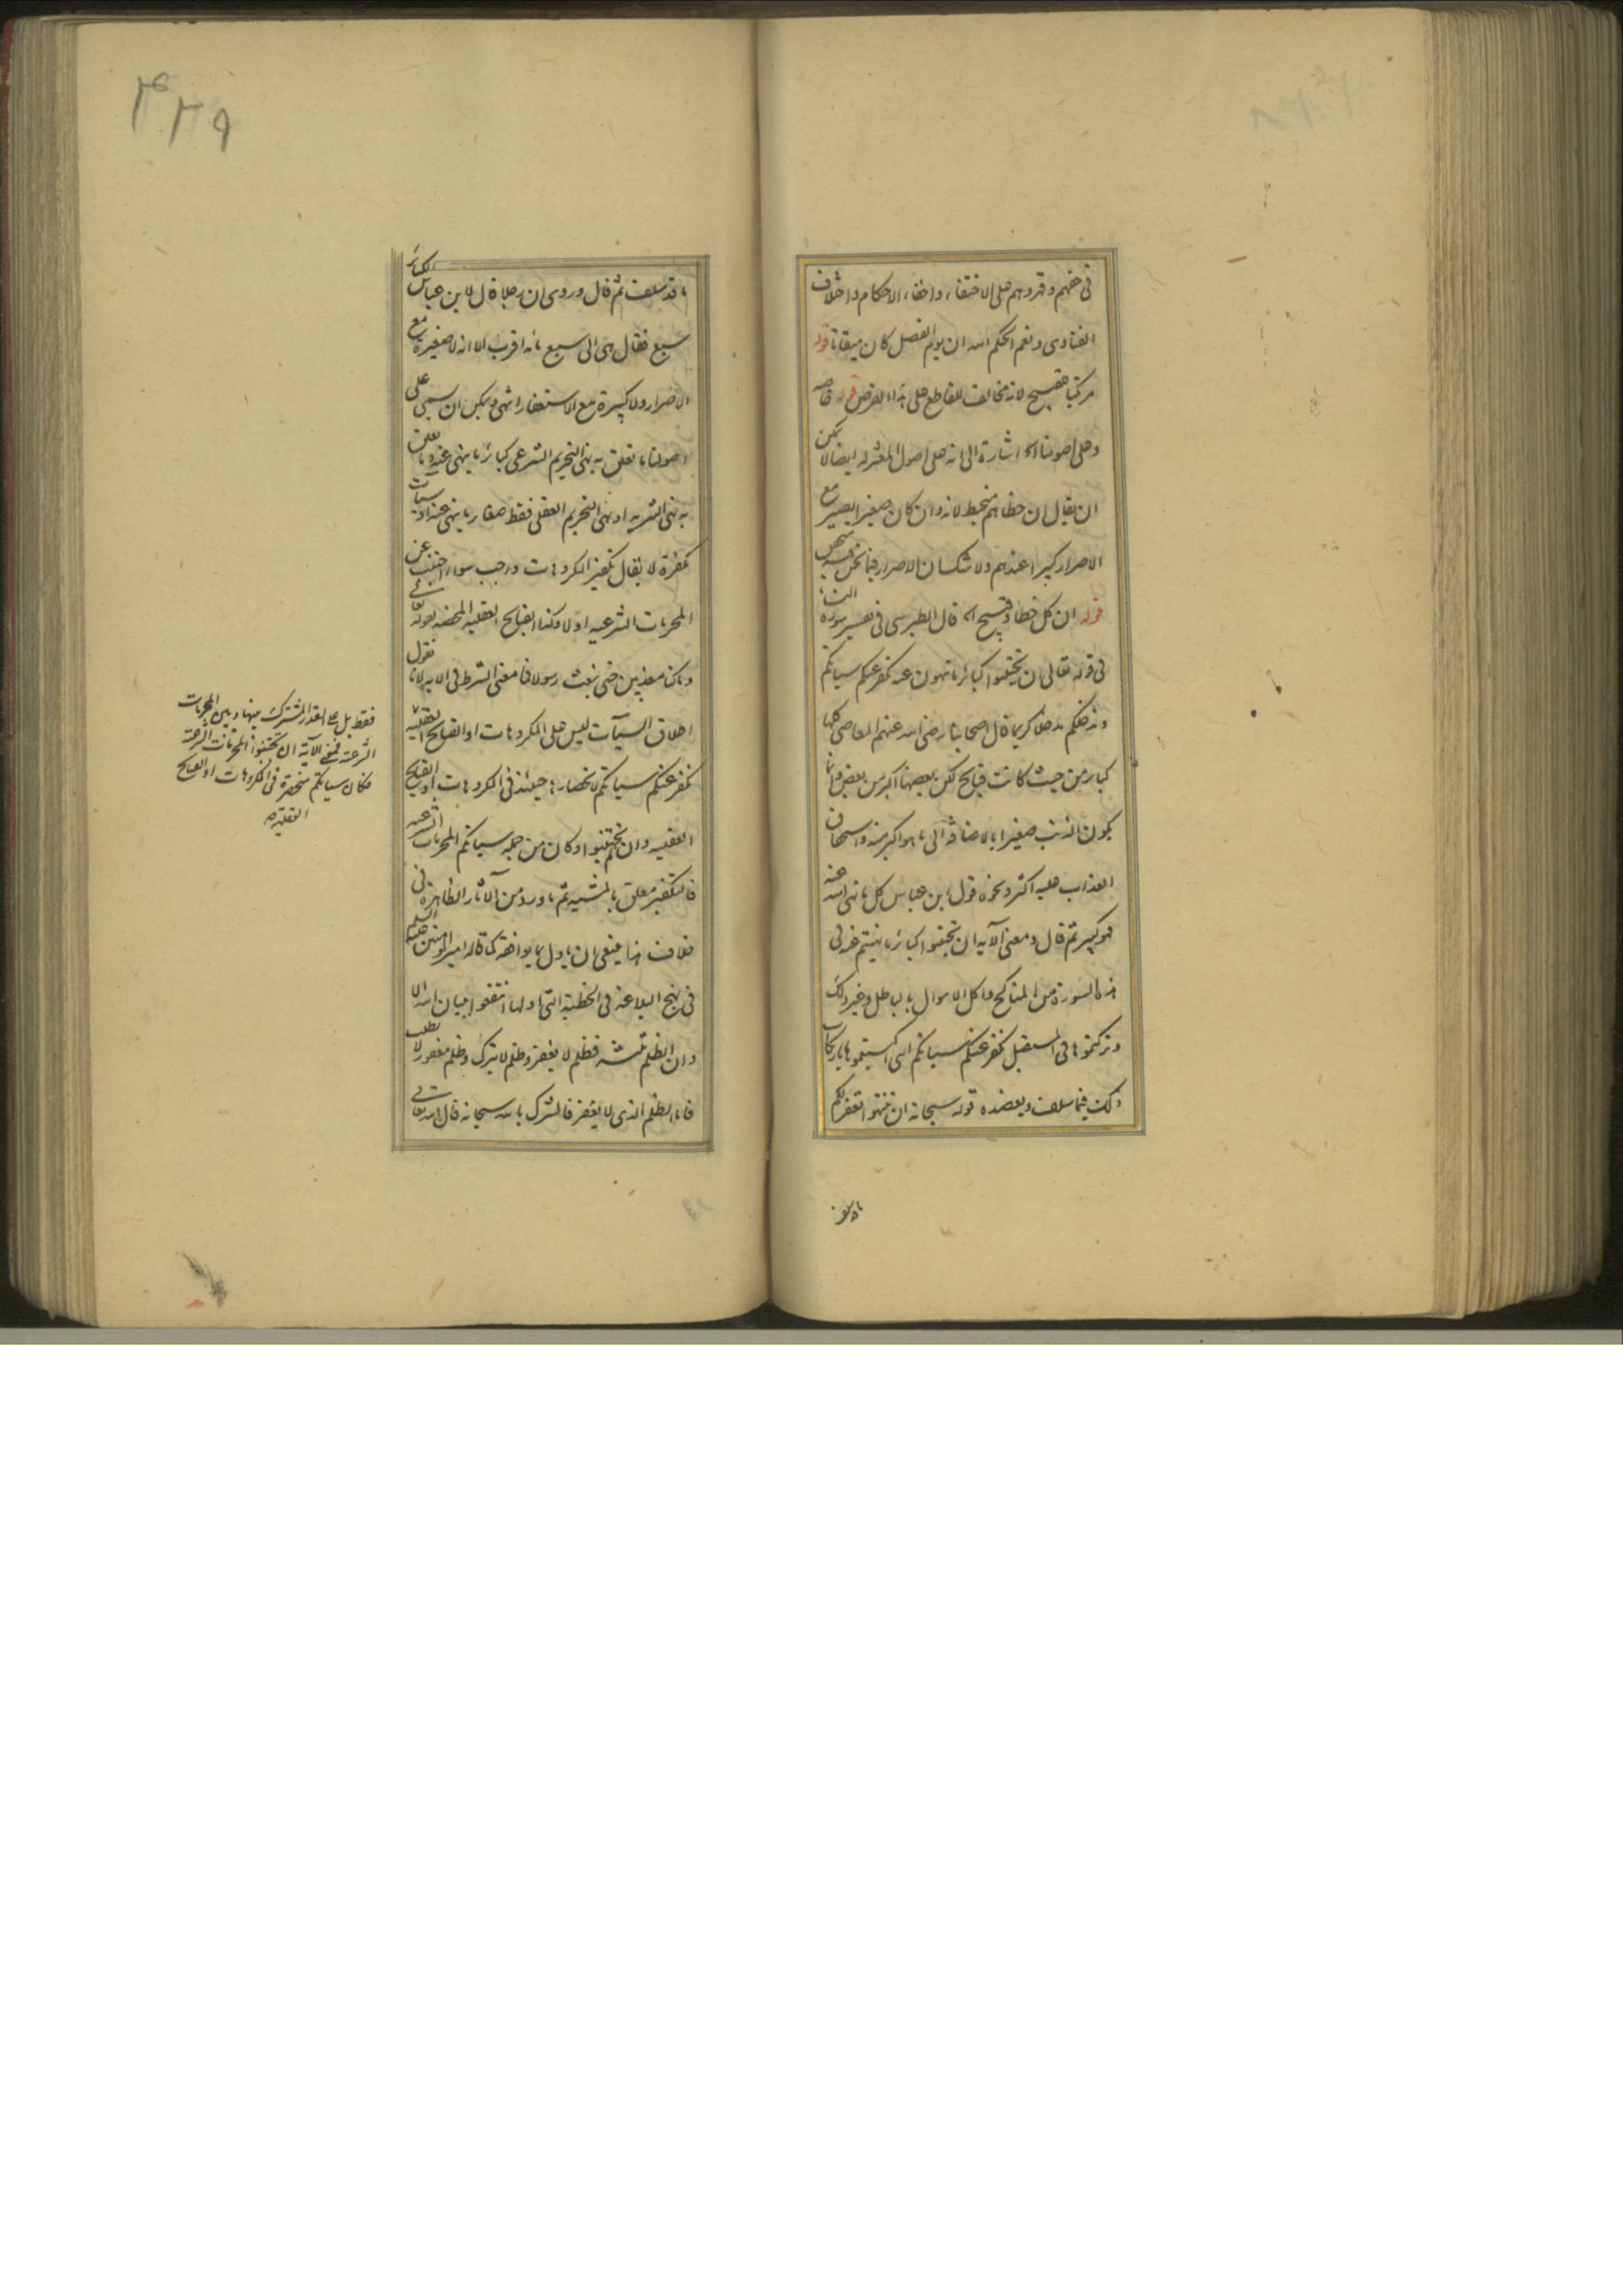 فى حقهم وقهروهم على الاختفاء واخفاء الاحكام واختلاف
الفتاوى ونعم الحكم الله ان يوم الفصل كان ميقاتا قوله
مرتكبها قبيح لانه مخالف للقاطع على هذا الفرض قوله خاصه
وعلى اصولنا اه اشارة الى انه على اصول المعتزله ايضا لا يمكن
ان يقال ان خطاهم منحبط لانه وان كان صغيرا يصير مع
الاصرار كبيرا عندهم ولا شك ان الاصرار فيما نحن فيه متحقق
قوله ان كل خطاء وقبيح اه قال الطبرسى فى تفسير سورة النساء
فى قوله تعالى ان تجتنبوا كبائر ما تنهون عنه نكفر عنكم سيئاتكم
وندخلكم مدخلا كريما قال اصحابنا رضى الله عنهم المعاصى كلها
كبائر من حيث كانت قبائح لكن بعضها اكبر من بعض وانما
يكون الذنب صغيرا بالاضافة الى ما هو اكبر منه واستحقاق
العذاب عليه اكثر ونحوه قول ابن عباس كل ما نهى الله عنه
فهو كبير ثم قال ومعنى الآيه ان تجتنبوا كبائر ما نهيتم عنه فى
هذه السورة من المناكح واكل الاموال بالباطل وغير ذلك
وتركتموها فى المستقبل نكفر عنكم سيئاتكم التى اكتسبتموها بارتكاب
ذلك فيما سلف ويعضده قوله سبحانه ان تنتهوا نغفر لكم
ما قد سلف
ما قد سلف ثم قال وروى ان رجلا قال لابن عباس الكبائر
سبع فقال هى الى سبع مائه اقرب الا انه لا صغيرة مع
الاصرار ولا كبيرة مع الاستغفار انتهى ويمكن ان يسمى على
اصولنا ما تعلق به نهى التحريم الشرعى كبائر ما ينهى عنه وما تعلق
به نهى التنزيه او نهى التحريم العقلى فقط صغائر ما ينهى عنه او سيئات
مكفرة لا يقال تكفير المكروهات واجب سواء اجتنب عن
المحرمات الشرعيه او لا وكذا القبائح العقليه المحضه لقوله تعالى
وما كنا معذبين حتى نبعث رسولا فما معنى الشرط فى الآيه لانا نقول
اطلاق السيئات ليس على المكروهات او القبائح العقليه
فقط بل على القدر المشترك بينها وبين المحرمات
الشرعية فمعنى الآية ان تجتنبوا المحرمات الشرعية
فكان سيئاتكم منحصرة فى المكروهات او القبائح
العقلية صح
نكفر عنكم سيئاتكم لانحصارها حينئذ فى المكروهات او القبائح
العقليه وان لم تجتنبوا وكان من جملة سيئاتكم المحرمات الشرعيه
فالتكفير معلق بالمشيه ثم ما ورد من الآثار الظاهرة فى
خلاف هذا ينبغى ان ياول بما يوافقه كما قاله امير المومنين عليه السلم
فى نهج البلاغه فى الخطبة التى اولها انتفعوا ببيان الله الا
وان الظلم ثلثه فظلم لا يغفر وظلم لا يترك وظلم مغفور لا يطلب
فاما الظلم الذى لا يغفر فالشرك بالله سبحانه قال الله تعالى
۴۳۹